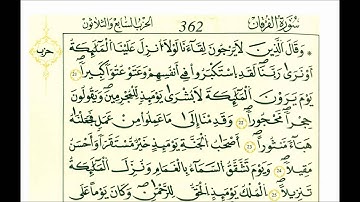 سُورَةُ الفُرْقَان 362 الحزب السابع والثلاثون
وَقَالَ الَّذِينَ لَا يَرْجُونَ لِقَاءَنَا لَوْلَا أُنزِلَ عَلَيْنَا الْمَلَٰئِكَةُ حزب
أَوْ نَرَىٰ رَبَّنَا لَقَدِ اسْتَكْبَرُوا فِي أَنفُسِهِمْ وَعَتَوْ عُتُوًّا كَبِيرًا 21
يَوْمَ يَرَوْنَ الْمَلَٰئِكَةَ لَا بُشْرَىٰ يَوْمَئِذٍ لِّلْمُجْرِمِينَ وَيَقُولُونَ
حِجْرًا مَّحْجُورًا 22 وَقَدِمْنَا إِلَىٰ مَا عَمِلُوا مِنْ عَمَلٍ فَجَعَلْنَٰهُ
هَبَاءً مَّنثُورًا 23 أَصْحَٰبُ الْجَنَّةِ يَوْمَئِذٍ خَيْرٌ مُّسْتَقَرًّا وَأَحْسَنُ
مَقِيلًا 24 وَيَوْمَ تَشَقَّقُ السَّمَاءُ بِالْغَمَٰمِ وَنُزِّلَ الْمَلَٰئِكَةُ
تَنزِيلًا 25 الْمُلْكُ يَوْمَئِذٍ الْحَقُّ لِلرَّحْمَٰنِ وَكَانَ يَوْمًا عَلَى